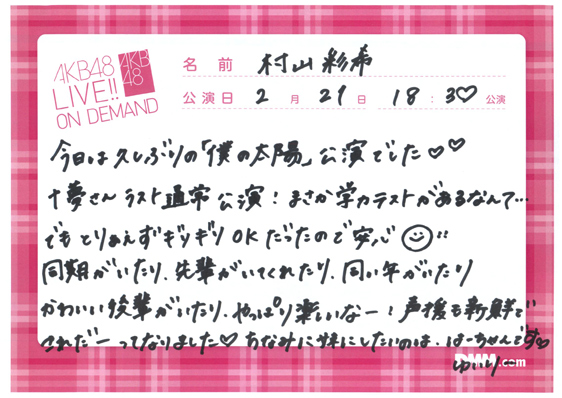 AKB48
LIVE!!
ON DEMAND
AKB
48
名前 村山彩希
公演日 2月29日 18:30公演
今日は久しぶりの「僕の太陽」公演でした♡♡
十夢さんラスト通常公演！まさか学力テストがあるなんて…
でもとりあえずギリギリOKだったので安心☺!!
同期がいたり、先輩がいてくれたり、同い年がいたり
かわいい後輩がいたり、やっぱり楽しいなー！声援も新鮮で
これだーってなりました♡ちなみに妹にしたいのは、はーちゃんです♡
ゆいりー
DMM.com